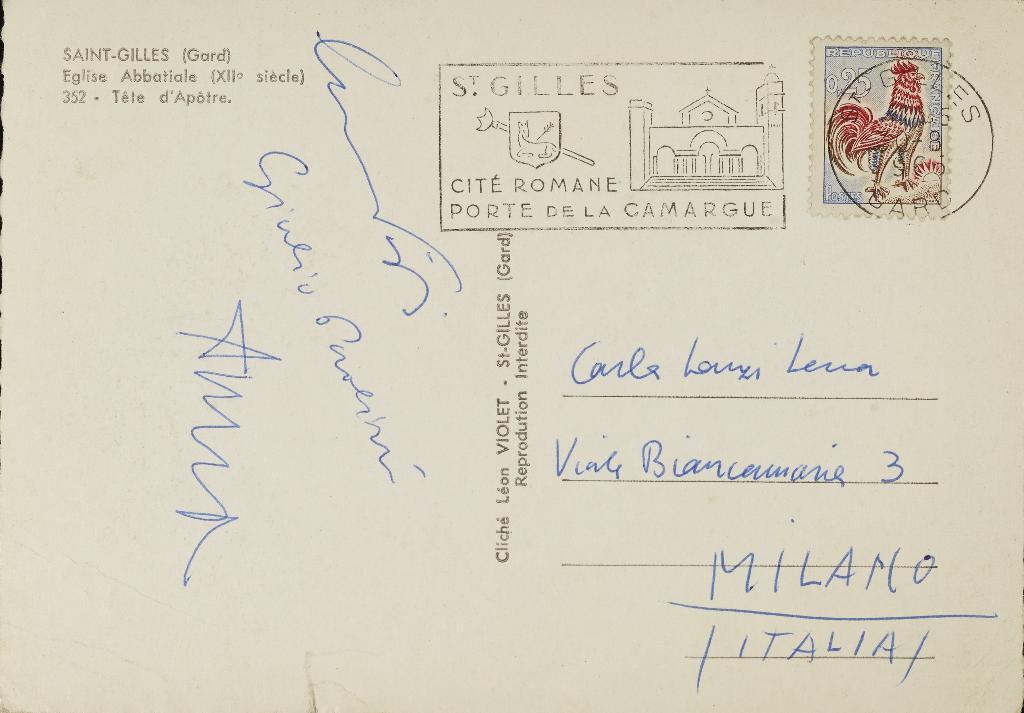 SAINT-GILLES (Gard)
Eglise Abbatiale (XIIe siècle)
352 - Tête d'Apôtre.
ST GILLES
CITÉ ROMANE
PORTE DE LA CAMARGUE
REPUBLIQUE FRANÇAISE
0,25
POSTES
GARD
Giulio Paolini
Anna
Cliché Léon VIOLET - St-GILLES (Gard)
Reprodution Interdite
Carla Lonzi Lena
Viale Biancamaria 3
MILANO
/ITALIA/